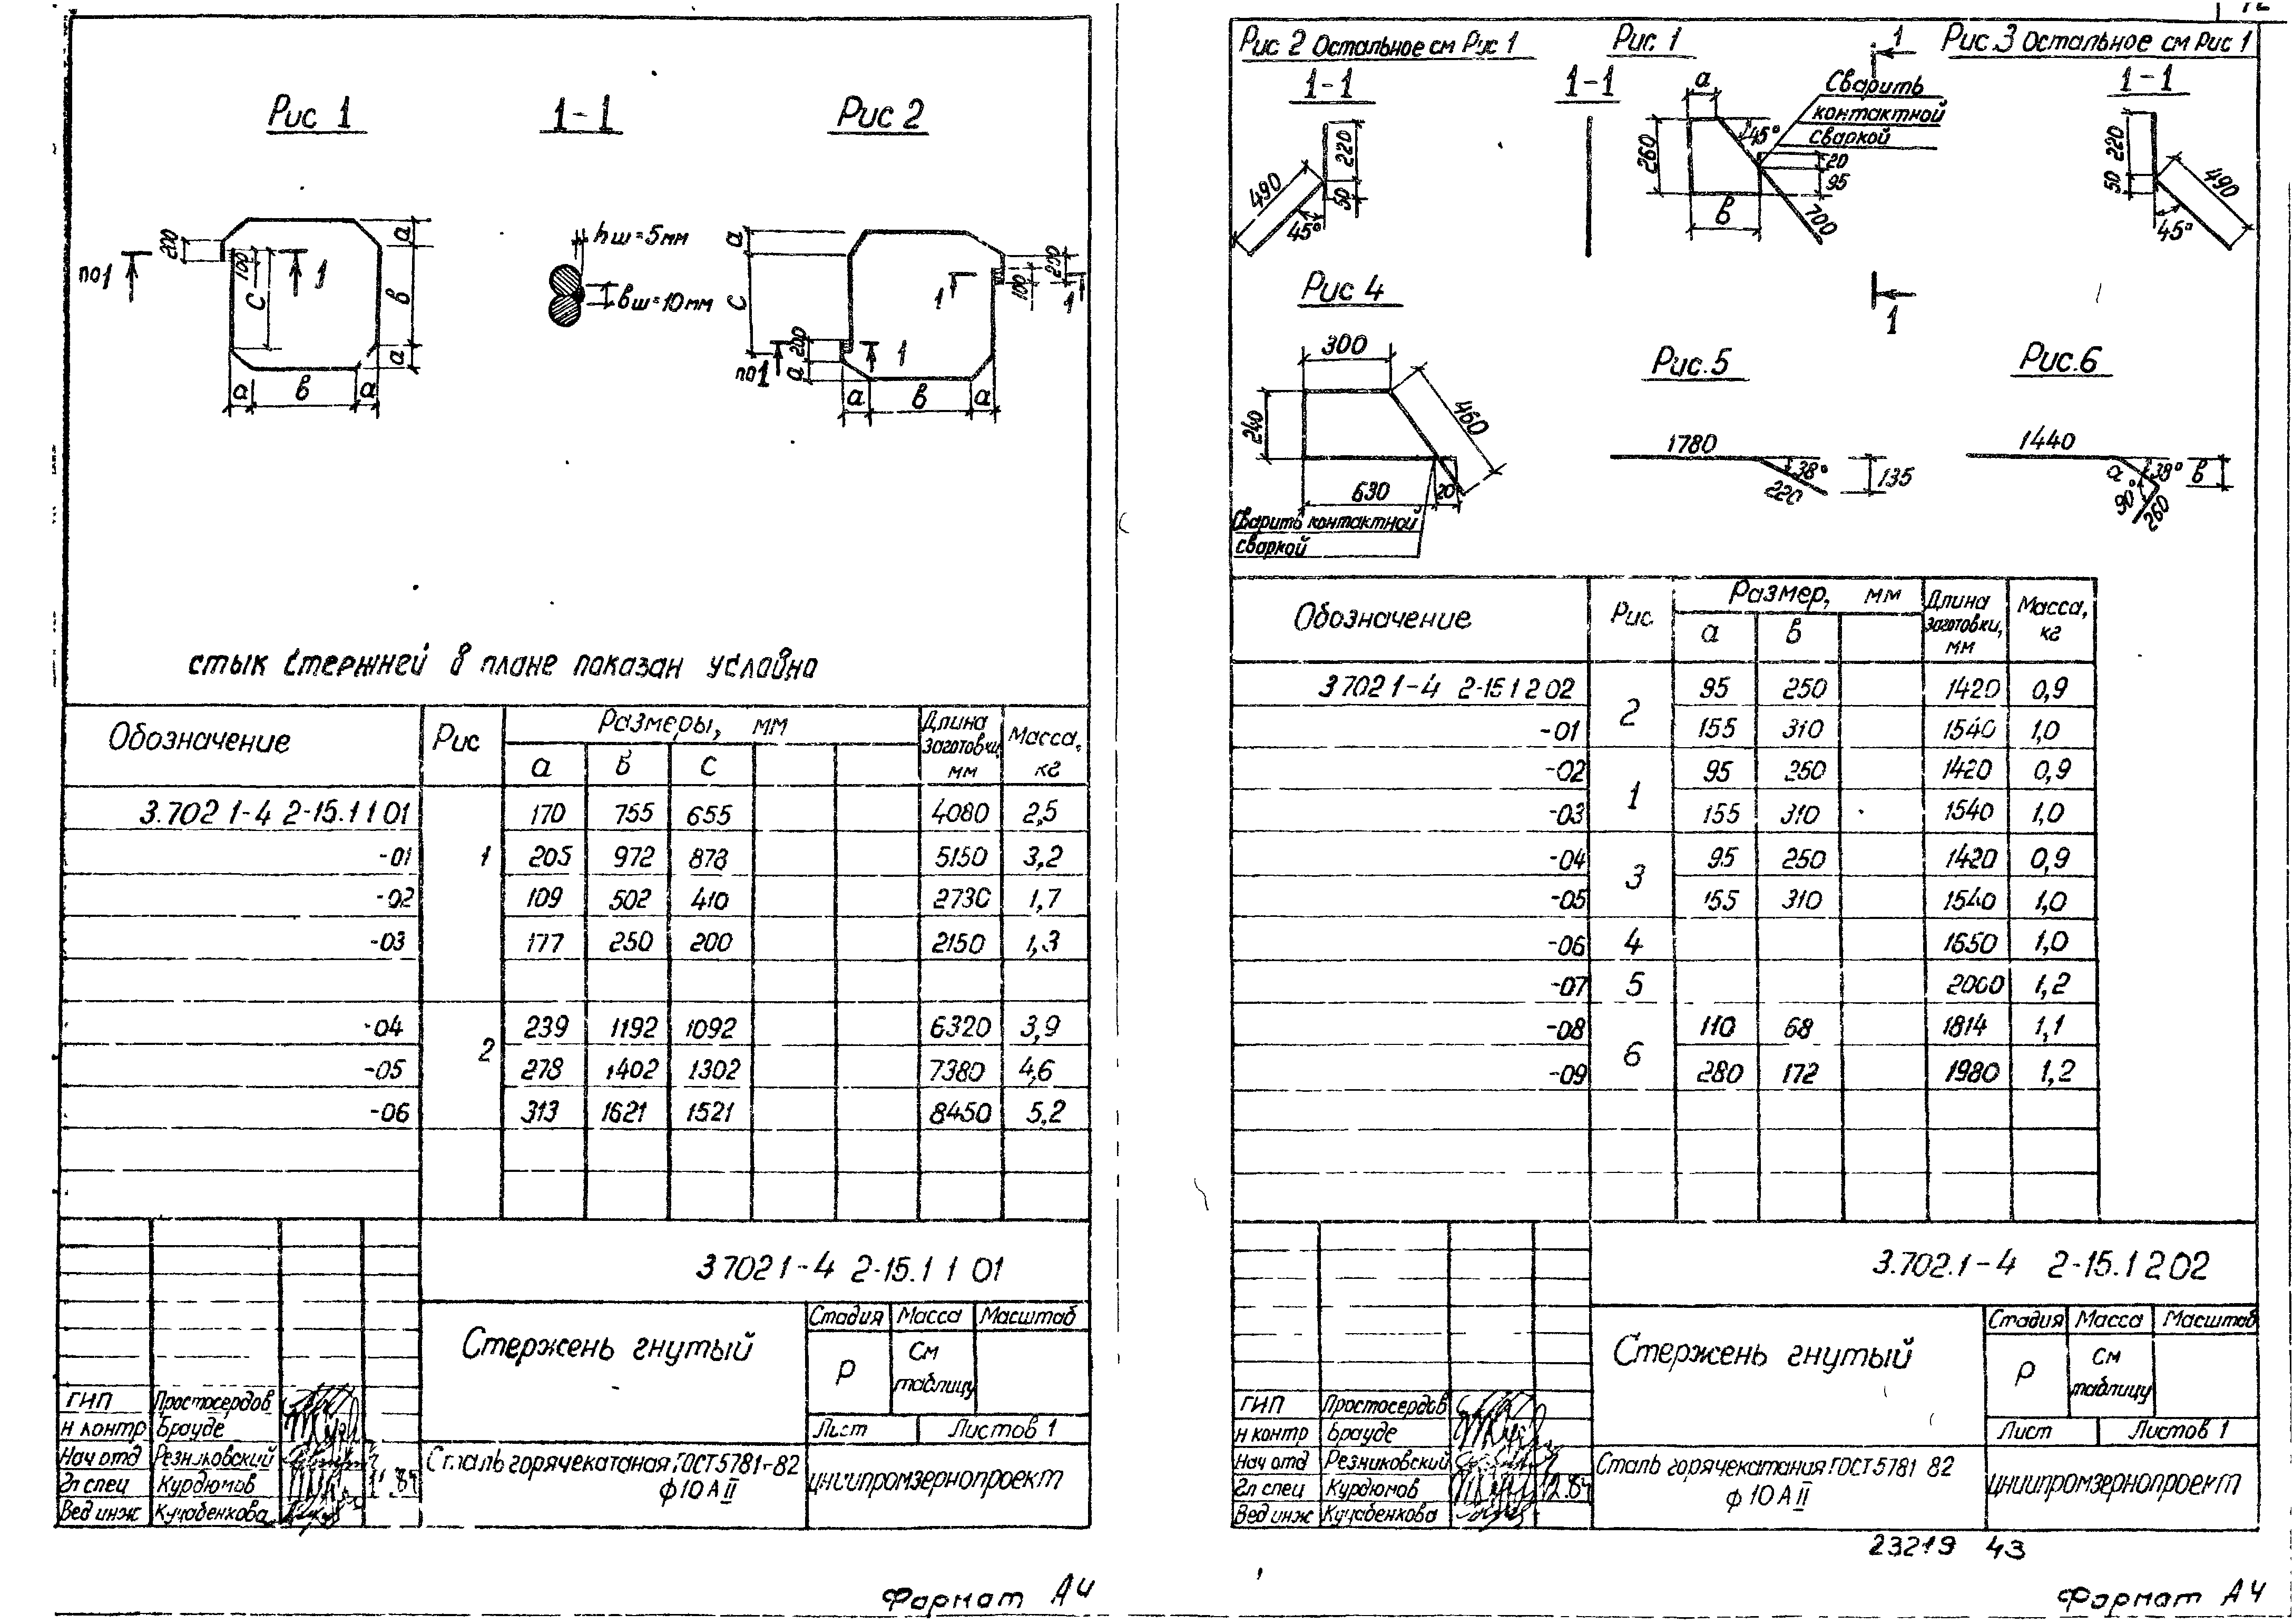 Рис 1
1-1
Рис 2
200
100
с
по 1
1
а
в
а
а
в
а
hш=5мм
вш=10мм
а
с
200
а
по 1
1
1
200
100
1
а
в
а
стык стержней в плане показан условно
Обозначение Рис Размеры, мм Длина заготовки, мм Масса, кг
а в с
3.702 1-4 2-15.1 1 01 1 170 755 655 4080 2,5
-01 205 972 878 5150 3,2
-02 109 502 410 2730 1,7
-03 177 250 200 2150 1,3
-04 2 239 1192 1092 6320 3,9
-05 278 1402 1302 7380 4,6
-06 313 1621 1521 8450 5,2
3 702 1-4 2-15.1 1 01
Стержень гнутый
Стадия Масса Масштаб
Р См таблицу
Лист Листов 1
ГИП Простосердов
н контр Брауде
Нач отд Резниковский
Гл спец Курдюмов
Вед инж Кучабенкова
Сталь горячекатаная ГОСТ 5781-82
ф 10 А II
цниипромзернопроект
Формат А4
Рис 2 Остальное см Рис 1
1-1
490
45°
220
50
Рис. 1
1-1
а
260
45°
в
700
20
95
Сварить
контактной
сваркой
1
1
Рис. 3 Остальное см Рис 1
1-1
220
50
490
45°
Рис 4
300
240
460
630
20
Сварить контактной
сваркой
Рис. 5
1780
38°
220
135
Рис. 6
1440
а
38°
в
90°
260
Обозначение Рис. Размер, мм Длина заготовки, мм Масса, кг
а в
3 702 1-4 2-15 1 2 02 2 95 250 1420 0,9
-01 155 310 1540 1,0
-02 1 95 250 1420 0,9
-03 155 310 1540 1,0
-04 3 95 250 1420 0,9
-05 155 310 1540 1,0
-06 4 1650 1,0
-07 5 2000 1,2
-08 6 110 68 1814 1,1
-09 280 172 1980 1,2
3.702.1-4 2-15.1 2 02
Стержень гнутый
Стадия Масса Масштаб
Р См таблицу
Лист Листов 1
ГИП Простосердов
н контр Брауде
Нач отд Резниковский
Гл спец Курдюмов
Вед инж Кучабенкова
12.84
Сталь горячекатаная ГОСТ 5781 82
ф 10 А II
цниипромзернопроект
23219 43
Формат А4